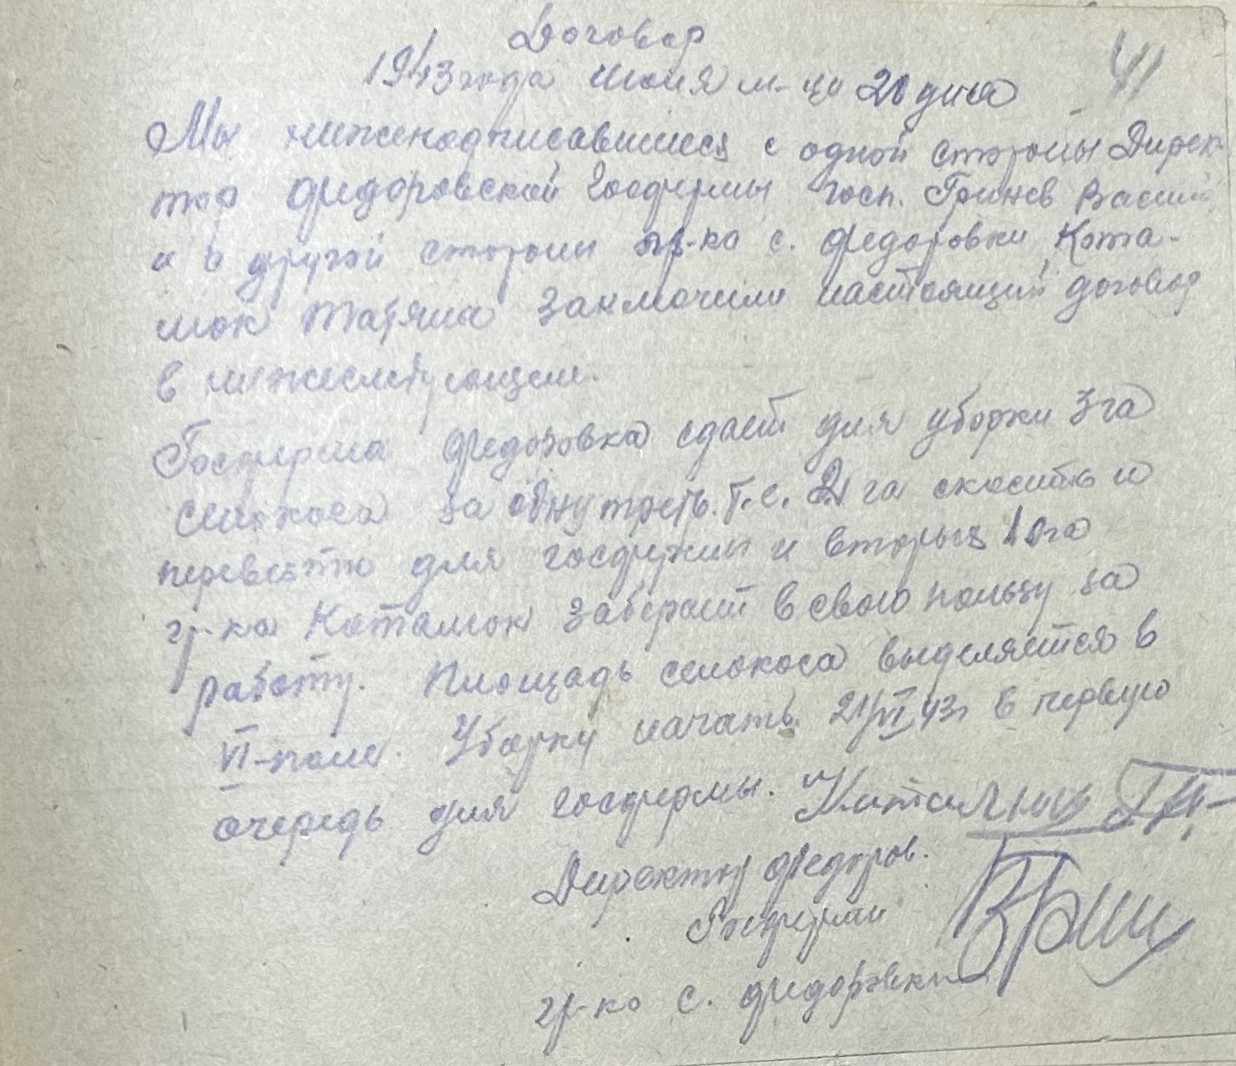 Договор
41
1943 года июня м-ца 20 дня
Мы нижеподписавшиеся с одной стороны Дирек-
тор Федоровской Госфермы госп. Гринев Васили
и с другой стороны гр-ка с. Федоровки Ката-
люк Татяна заключили настоящий договор
в нижеследующем.
Госферма Федоровка сдает для уборки 3 га
сенокоса за одну треть. т.е. 2 га скосить и
перевезти для госфермы и вторых 1 га
гр-ка Каталюк заберает в свою пользу за
работу. Площадь сенокоса выделяется в
VI-поле. Уборку начать 21/VI 43 г в первую
очередь для госфермы.
Директор Федоров.
Госфермы
гр-ка с. Федоровки